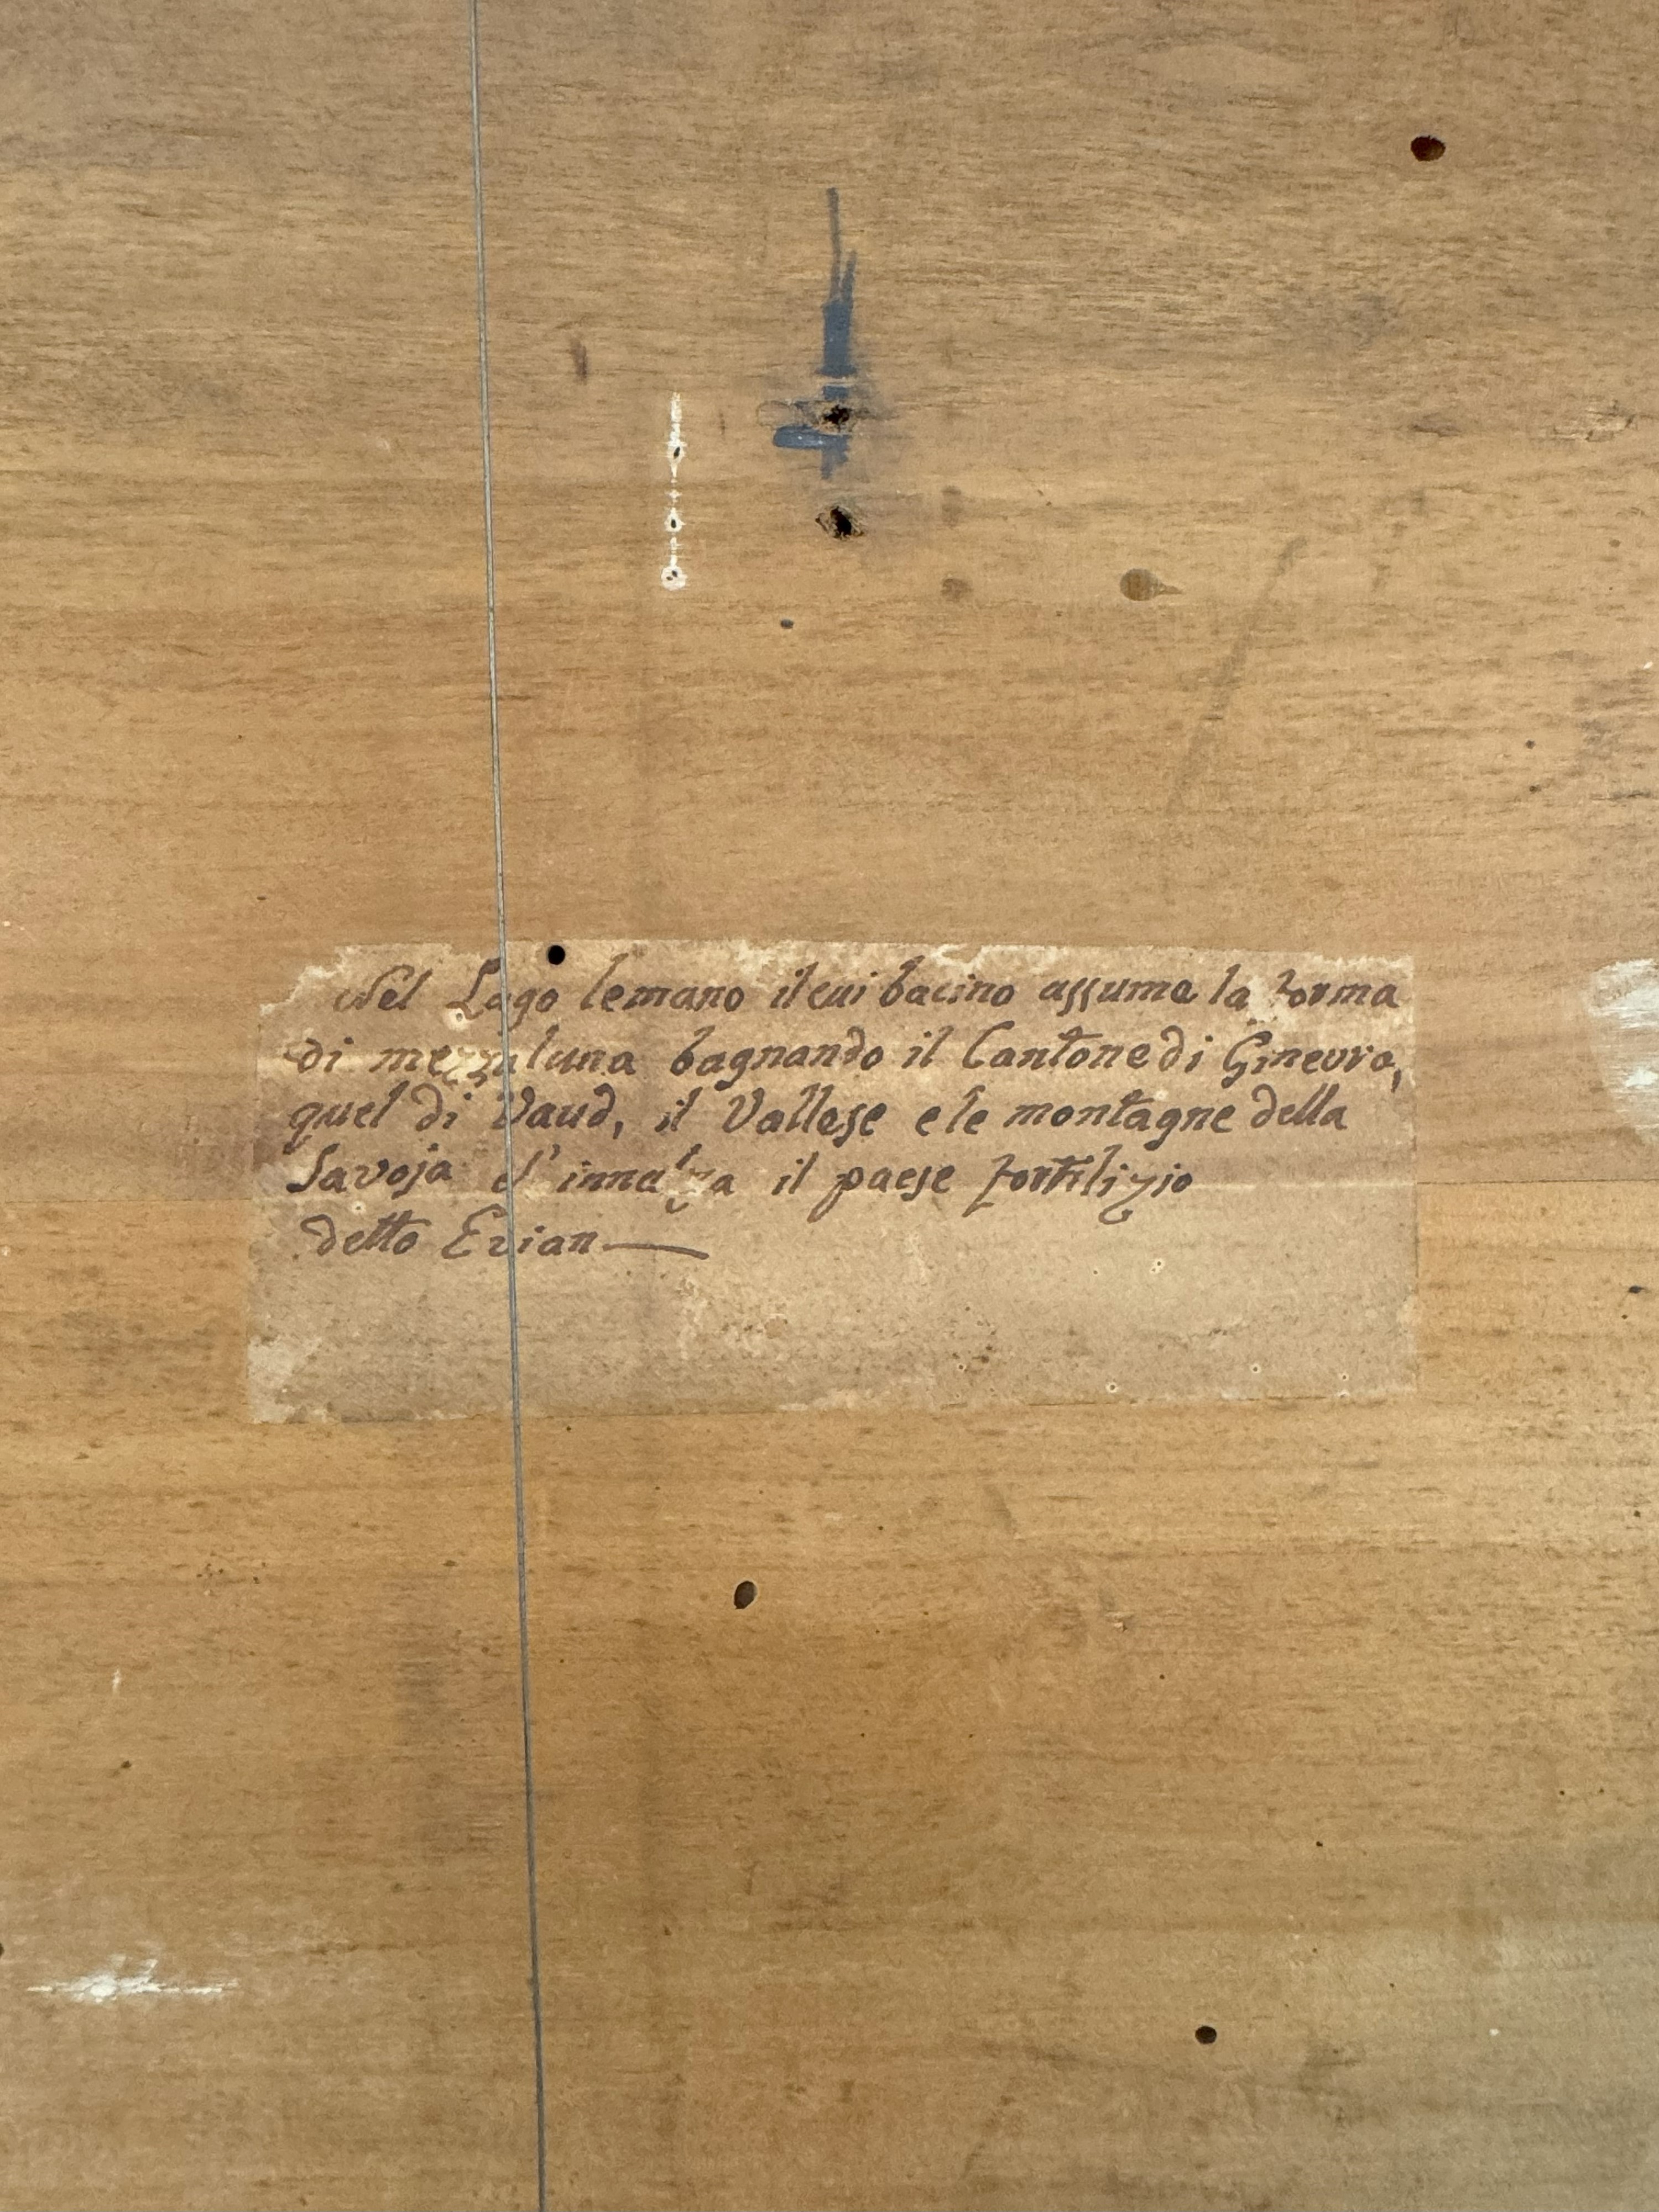 Nel Lago lemano il cui bacino assume la forma
di mezzaluna bagnando il Cantone di Ginevra,
quel di Vaud, il Vallese e le montagne della
Savoja s'innalza il paese fortilizio
detto Evian—